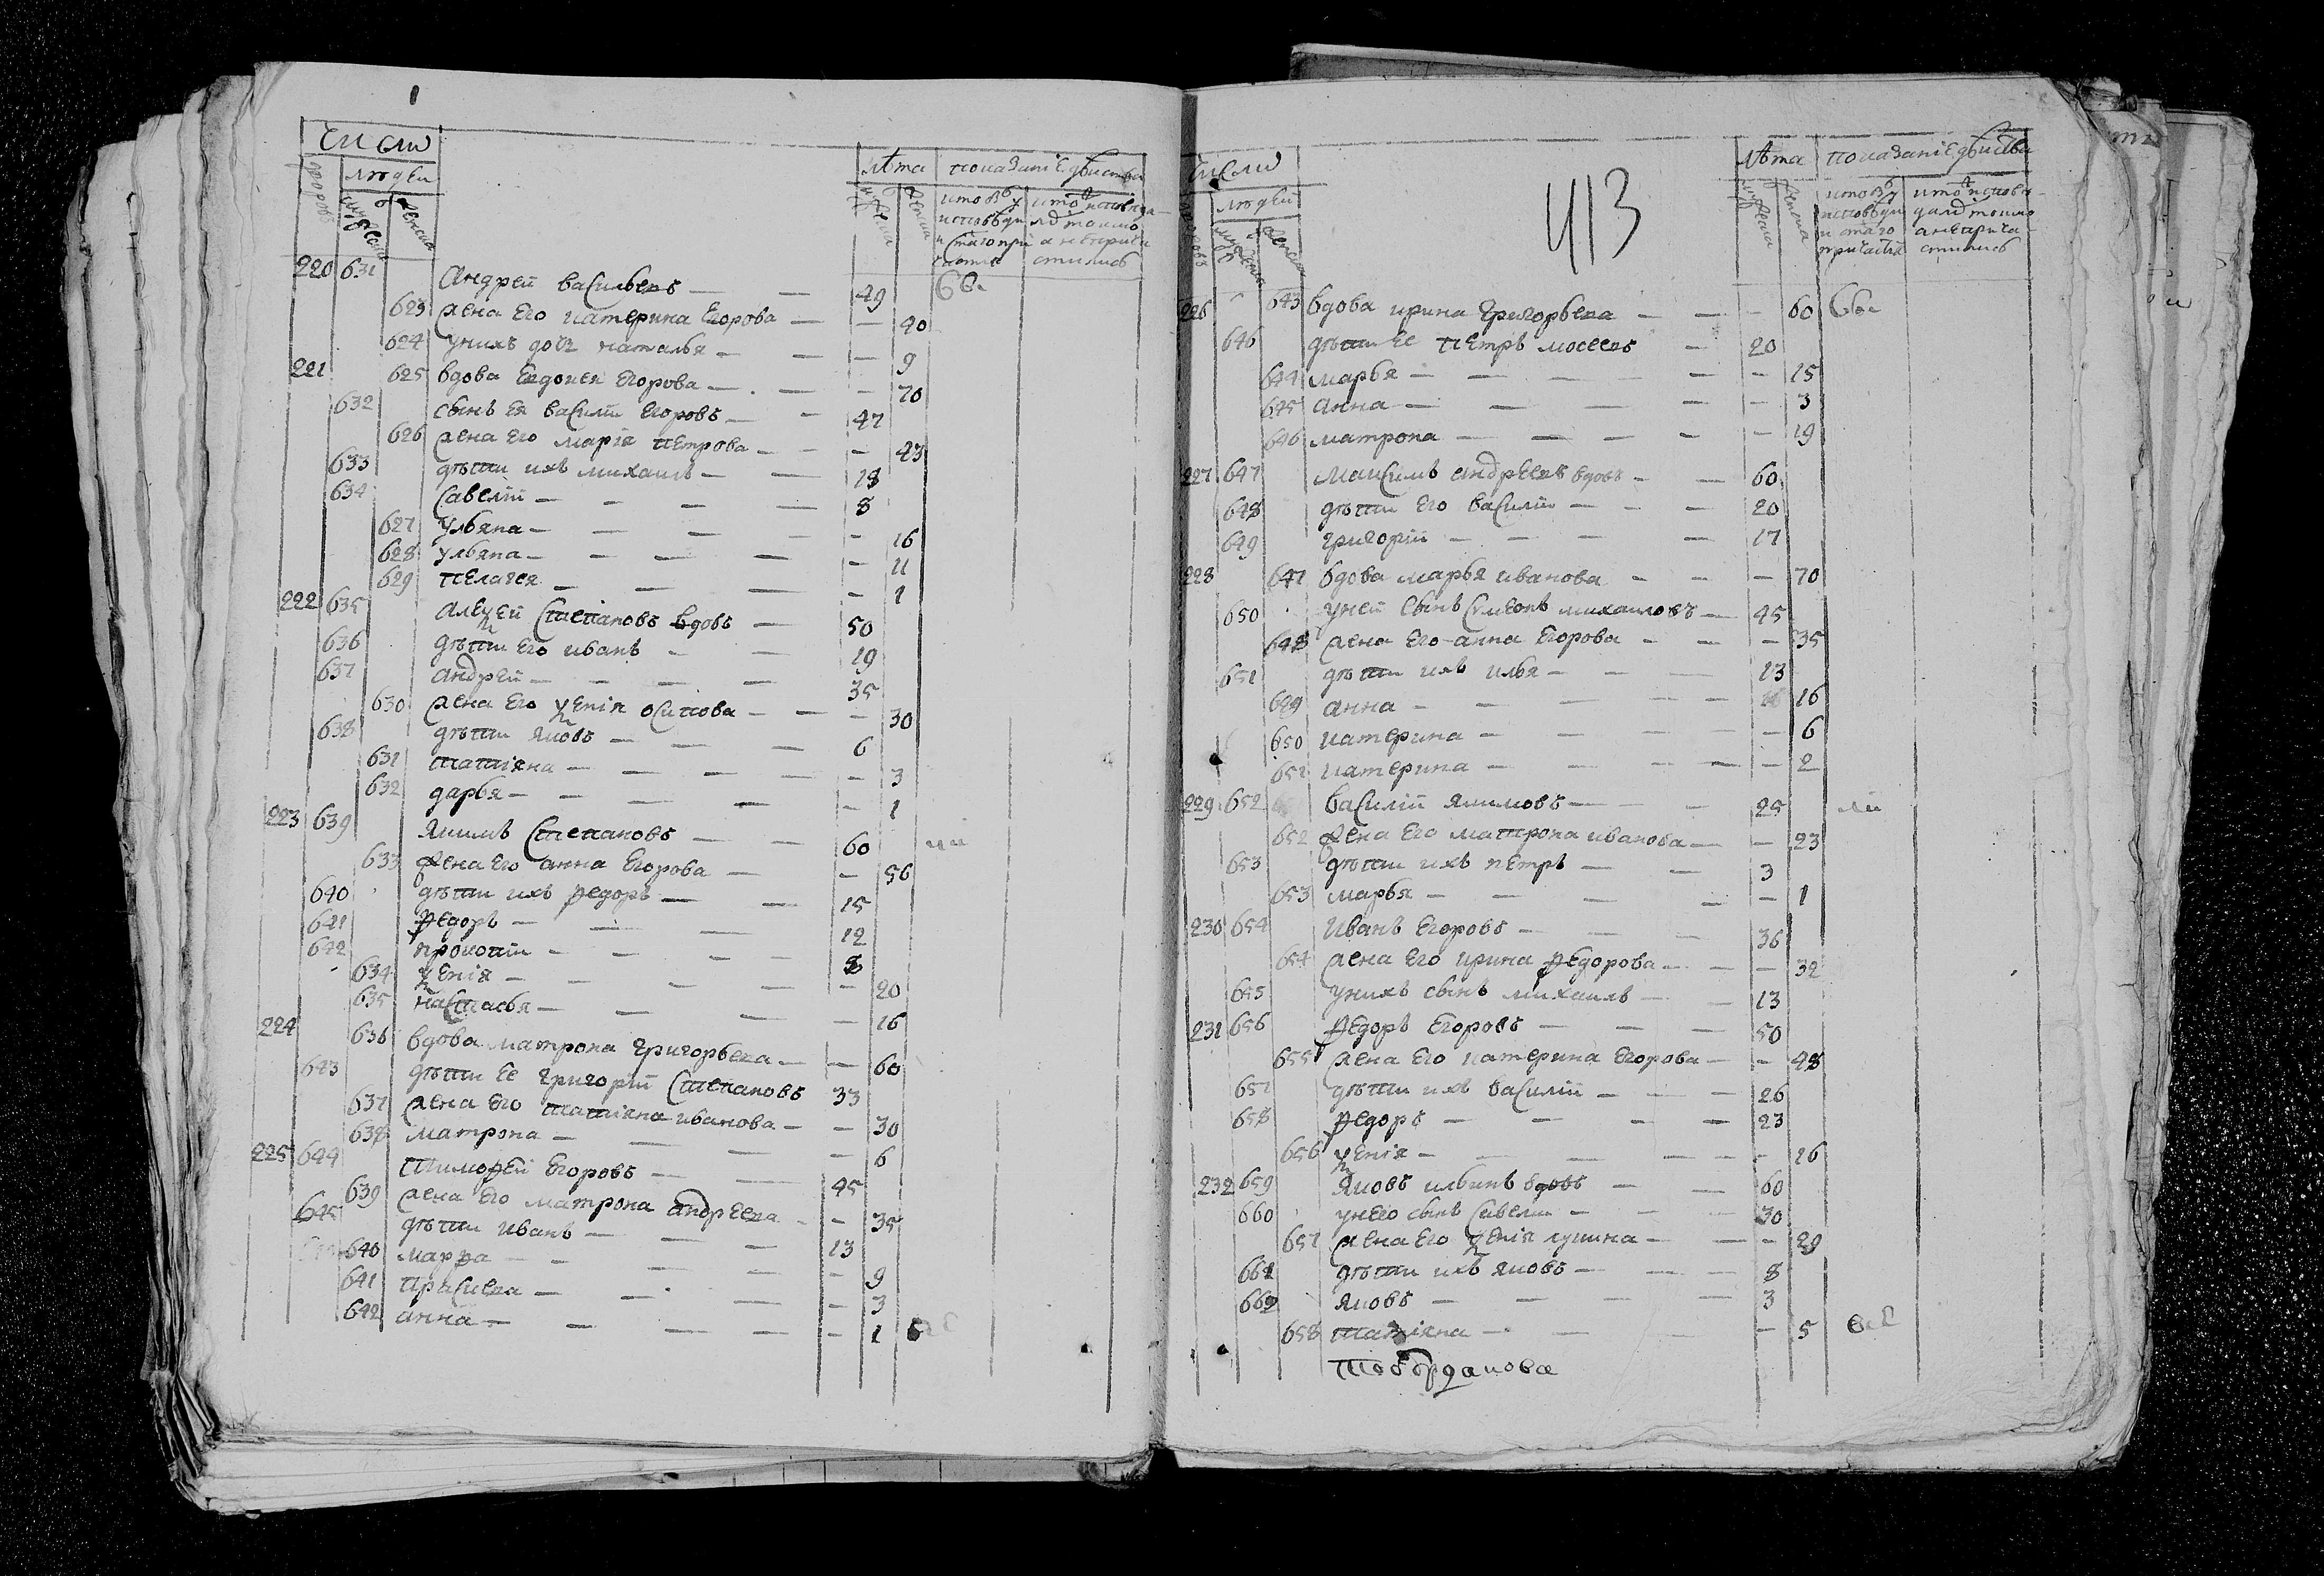 число
людей
дворовъ
мужеска
женска
лѣта
показаніе действа
мужеска
женска
220 631 Андрей васильевъ — — 49
623 жена Его катерина Егорова — — 40
624 унихъ дочь наталья — — — 9
221 625 вдова Евдокея Егорова — — — 70
632 сынъ Ея василiй Егоровъ — — 47
626 жена Его марiя петрова — — — 43
633 дѣти ихъ михаилъ — — 18
634 савелiй — — — — 8
627 ульяна — — — — — 16
628 ульяна — — — — — 11
629 пелагея — — — — — 1
222 635 Алексей степановъ вдовъ — 50
636 дѣти Его иванъ — — 19
637 андрей — — — — 35
630 жена Его ксенiя осипова — — — 30
638 дѣти яковъ — — — 6
631 татiяна — — — — — 3
632 дарья — — — — — 1
223 639 якимъ степановъ — — 60
633 жена Его анна Егорова — — 56
640 дѣти ихъ федоръ — — 15
641 федоръ — — — 12
642 прокопiй — — — — 8
634 ксенiя — — — — — 20
635 настасья — — — — 16
224 636 вдова матрона григорьева — — 60
643 дѣти ее григорiй степановъ 33
637 жена Его татiяна иванова — — 30
638 матрона — — — — 6
225 644 тимофей Егоровъ — — 45
639 жена Его матрона андреева — — 35
645 дѣти иванъ — — — 13
640 марфа — — — — — 9
641 прасковья — — — — 3
642 анна — — — — — 1
число
людей
413
лѣта
показаніе действа
226 643 вдова ирина григорьева — — — 60
646 дѣти ее петръ мосеевъ — 20
644 марья — — — — — 15
645 анна — — — — — 3
646 матрона — — — — — 19
227 647 максимъ андреевъ вдовъ — — 60
648 дѣти его василiй — — — 20
649 григорiй — — — — 17
228 647 вдова марья иванова — — — 70
650 уней сынъ симеонъ михаиловъ — 45
648 жена Его анна Егорова — — — 35
651 дѣти ихъ илья — — — 13
649 анна — — — — 16
650 катерина — — — — — 6
651 катерина — — — — — 2
229 652 василiй якимовъ — — 25
652 жена Его матрона иванова — — 23
653 дѣти ихъ петръ — — 3
653 марья — — — — — 1
230 654 Иванъ Егоровъ — — — 36
654 жена Его ирина федорова — — — 32
655 унихъ сынъ михаилъ — — 13
231 656 федоръ Егоровъ — — — 50
655 жена Его катерина Егорова — — 48
657 дѣти ихъ василiй — — — 26
658 федоръ — — — — 23
656 ксенiя — — — — — — 16
232 659 яковъ ильинъ вдовъ — — 60
660 унего сынъ савелiй — — — 30
657 жена Его ксенiя лукина — — — 29
661 дѣти ихъ яковъ — — — 8
662 яковъ — — — — 3
658 татiяна — — — 5